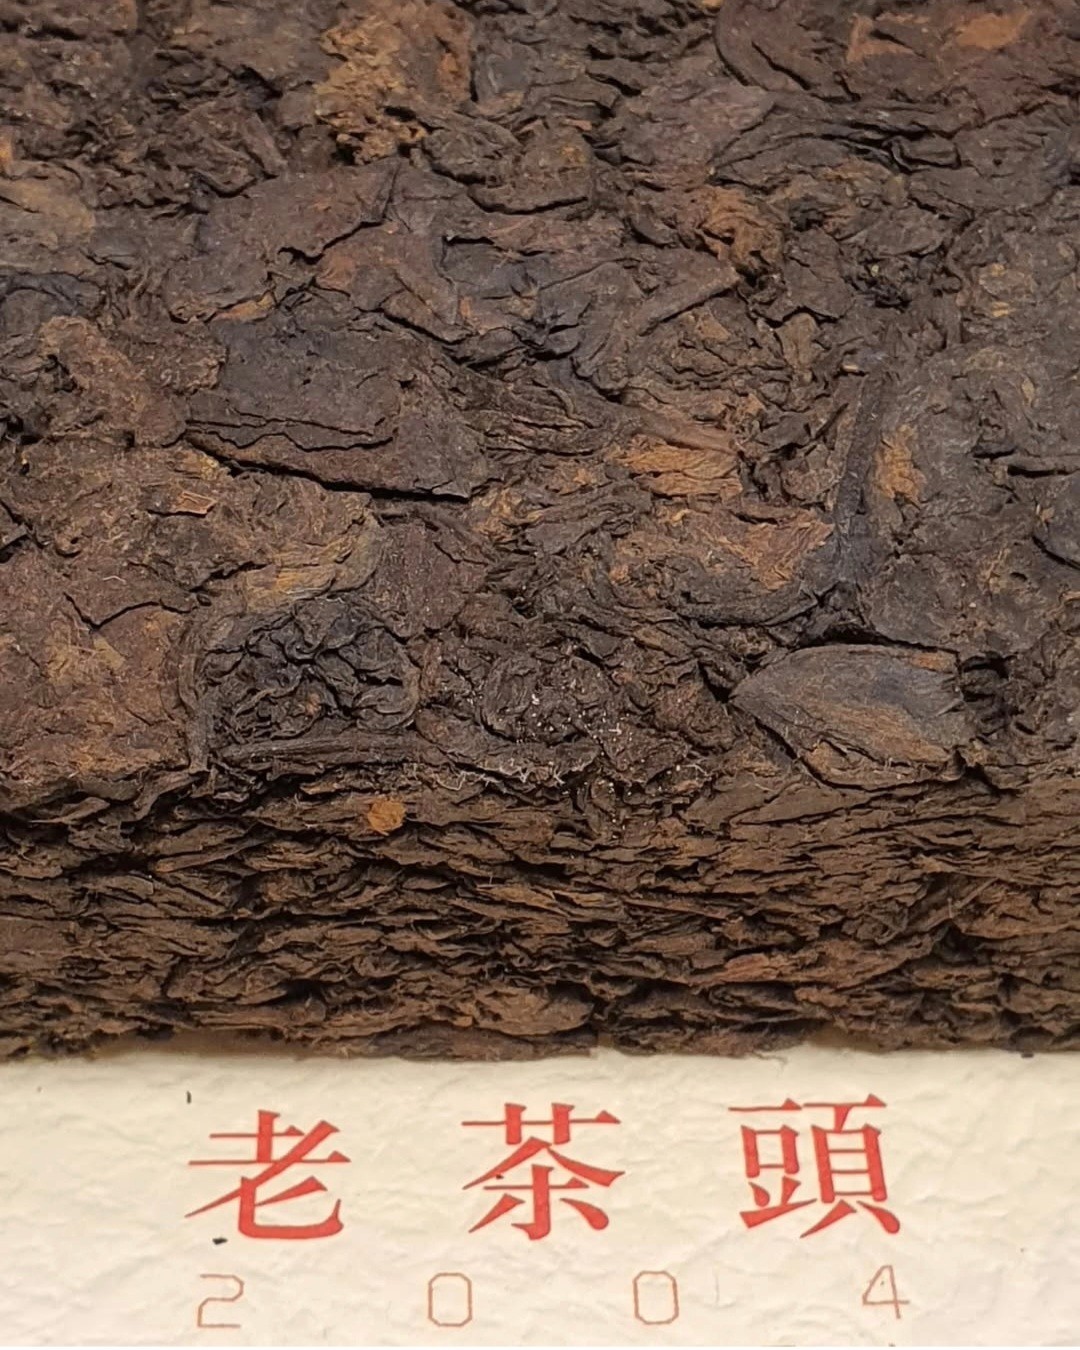 老茶頭
2004